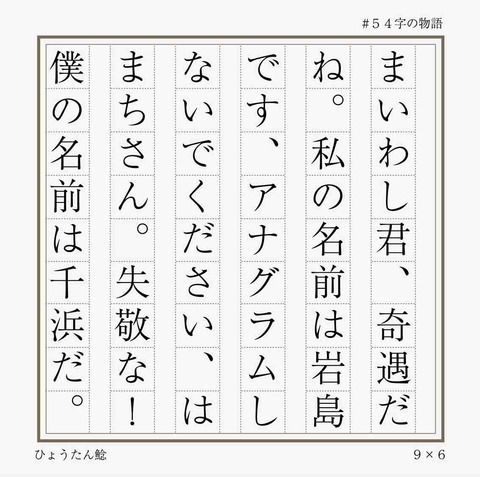 #54字の物語
まいわし君、奇遇だ
ね。私の名前は岩島
です、アナグラムし
ないでください、は
まちさん。失敬な!
僕の名前は千浜だ。
ひょうたん鯰
9×6